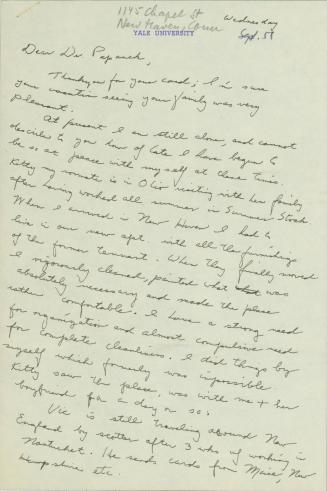 1145 Chapel St
New Haven, Conn
YALE UNIVERSITY
Wednesday
Sept. 5
Dear Dr. Papanek,
Thank you for your card; I'm sure
your vacation seeing your family was very
pleasant.
At present I am still alone, and cannot
describe to you how of late I have begun to
be so at peace with myself at these times.
Kitty my roommate is in Ohio visiting with her family
after having worked all summer in Summer Stock
When I arrived in New Haven I had to
live in our new apt. with all the furnishings
of the former tennant. When they finally moved
I vigorously cleaned, painted what was
absolutely necessary and made the place
rather comfortable. I have a strong need
for organization and almost compulsive need
for complete cleanliness. I did things by
myself which formerly was impossible.
Kitty saw the place, was with me + her
boyfriend for a day or so.
Vic is still traveling around New
England by scooter after 3 wks of working in
Nantucket. He sends cards from Maine, New
Hampshire etc.